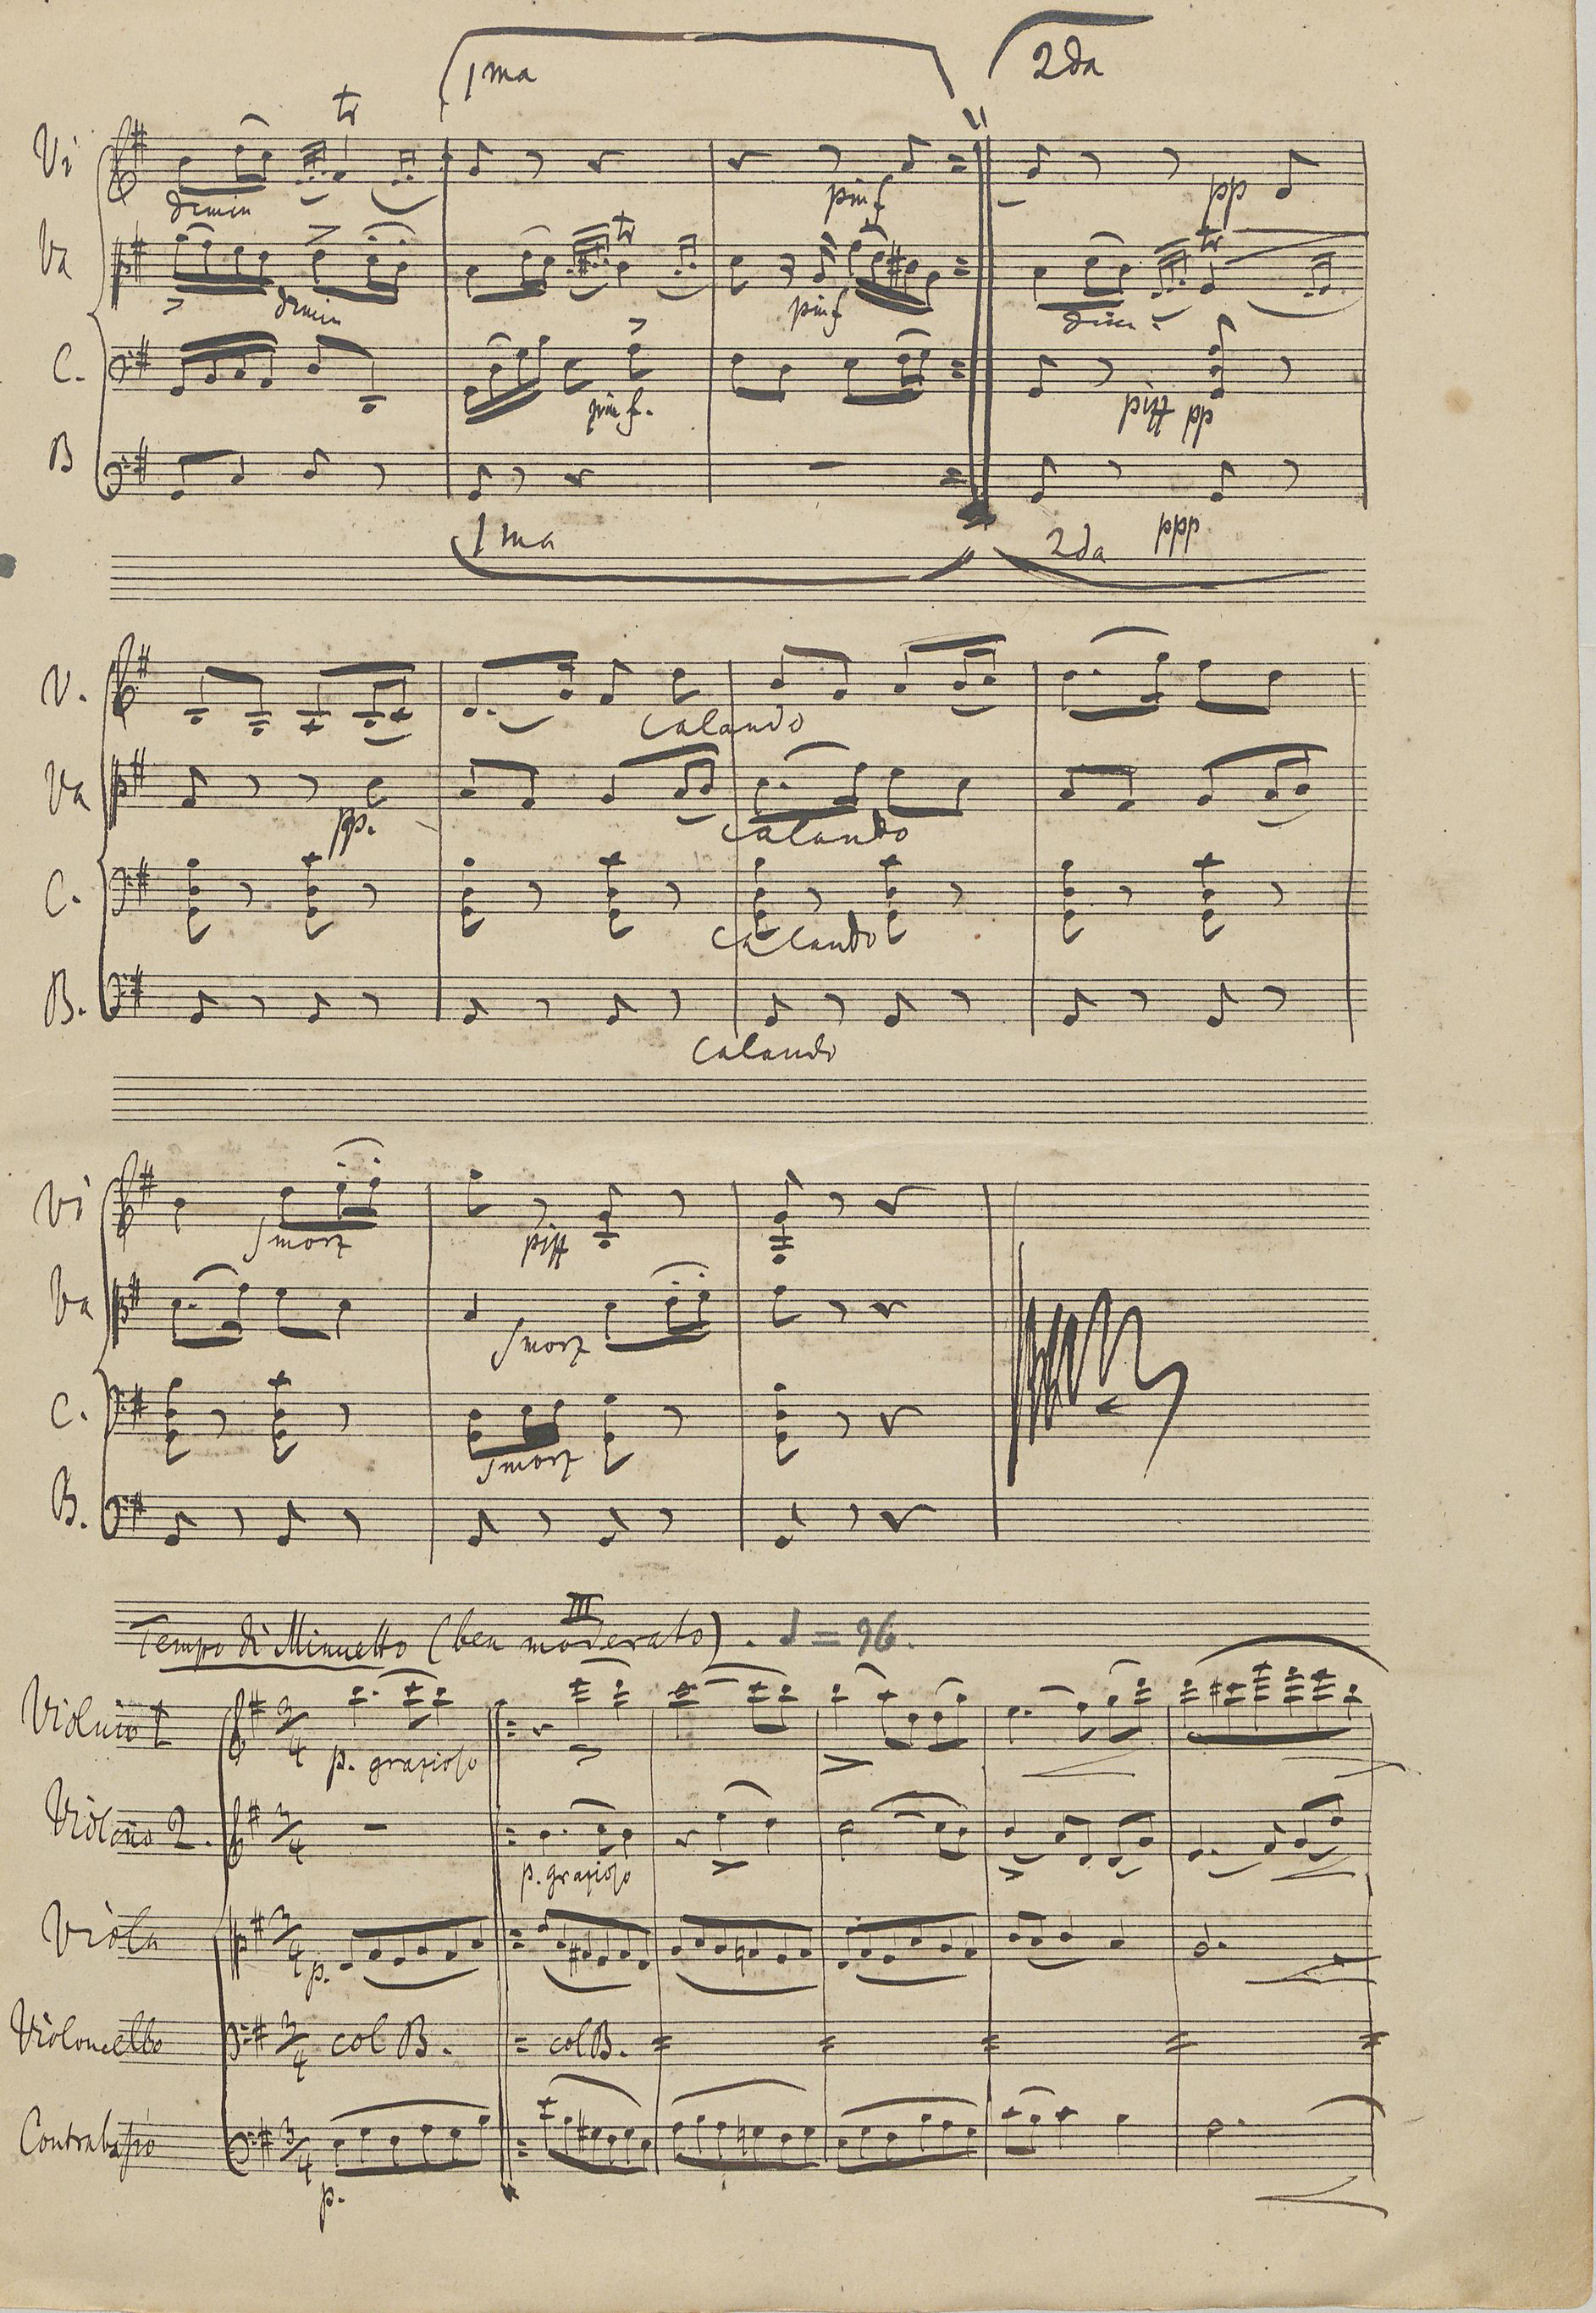 1ma 2da
tr
Vi
dimin pinf pp
Va tr tr
dimin pinf dim.
C.
pinf. piff pp
B
1ma 2da ppp
V.
calando
Va
pp. calando
C.
calando
B.
calando
Vi
smorz piff
Va
smorz
C.
smorz
B.
III
Tempo di Minuetto (ben moderato). ♩ = 96.
Violino 1 3/4
p. grazioso
Violino 2. 3/4
p. grazioso
Viola 3/4
p.
Violoncello 3/4 col B. col B.
Contrabasso 3/4
p.